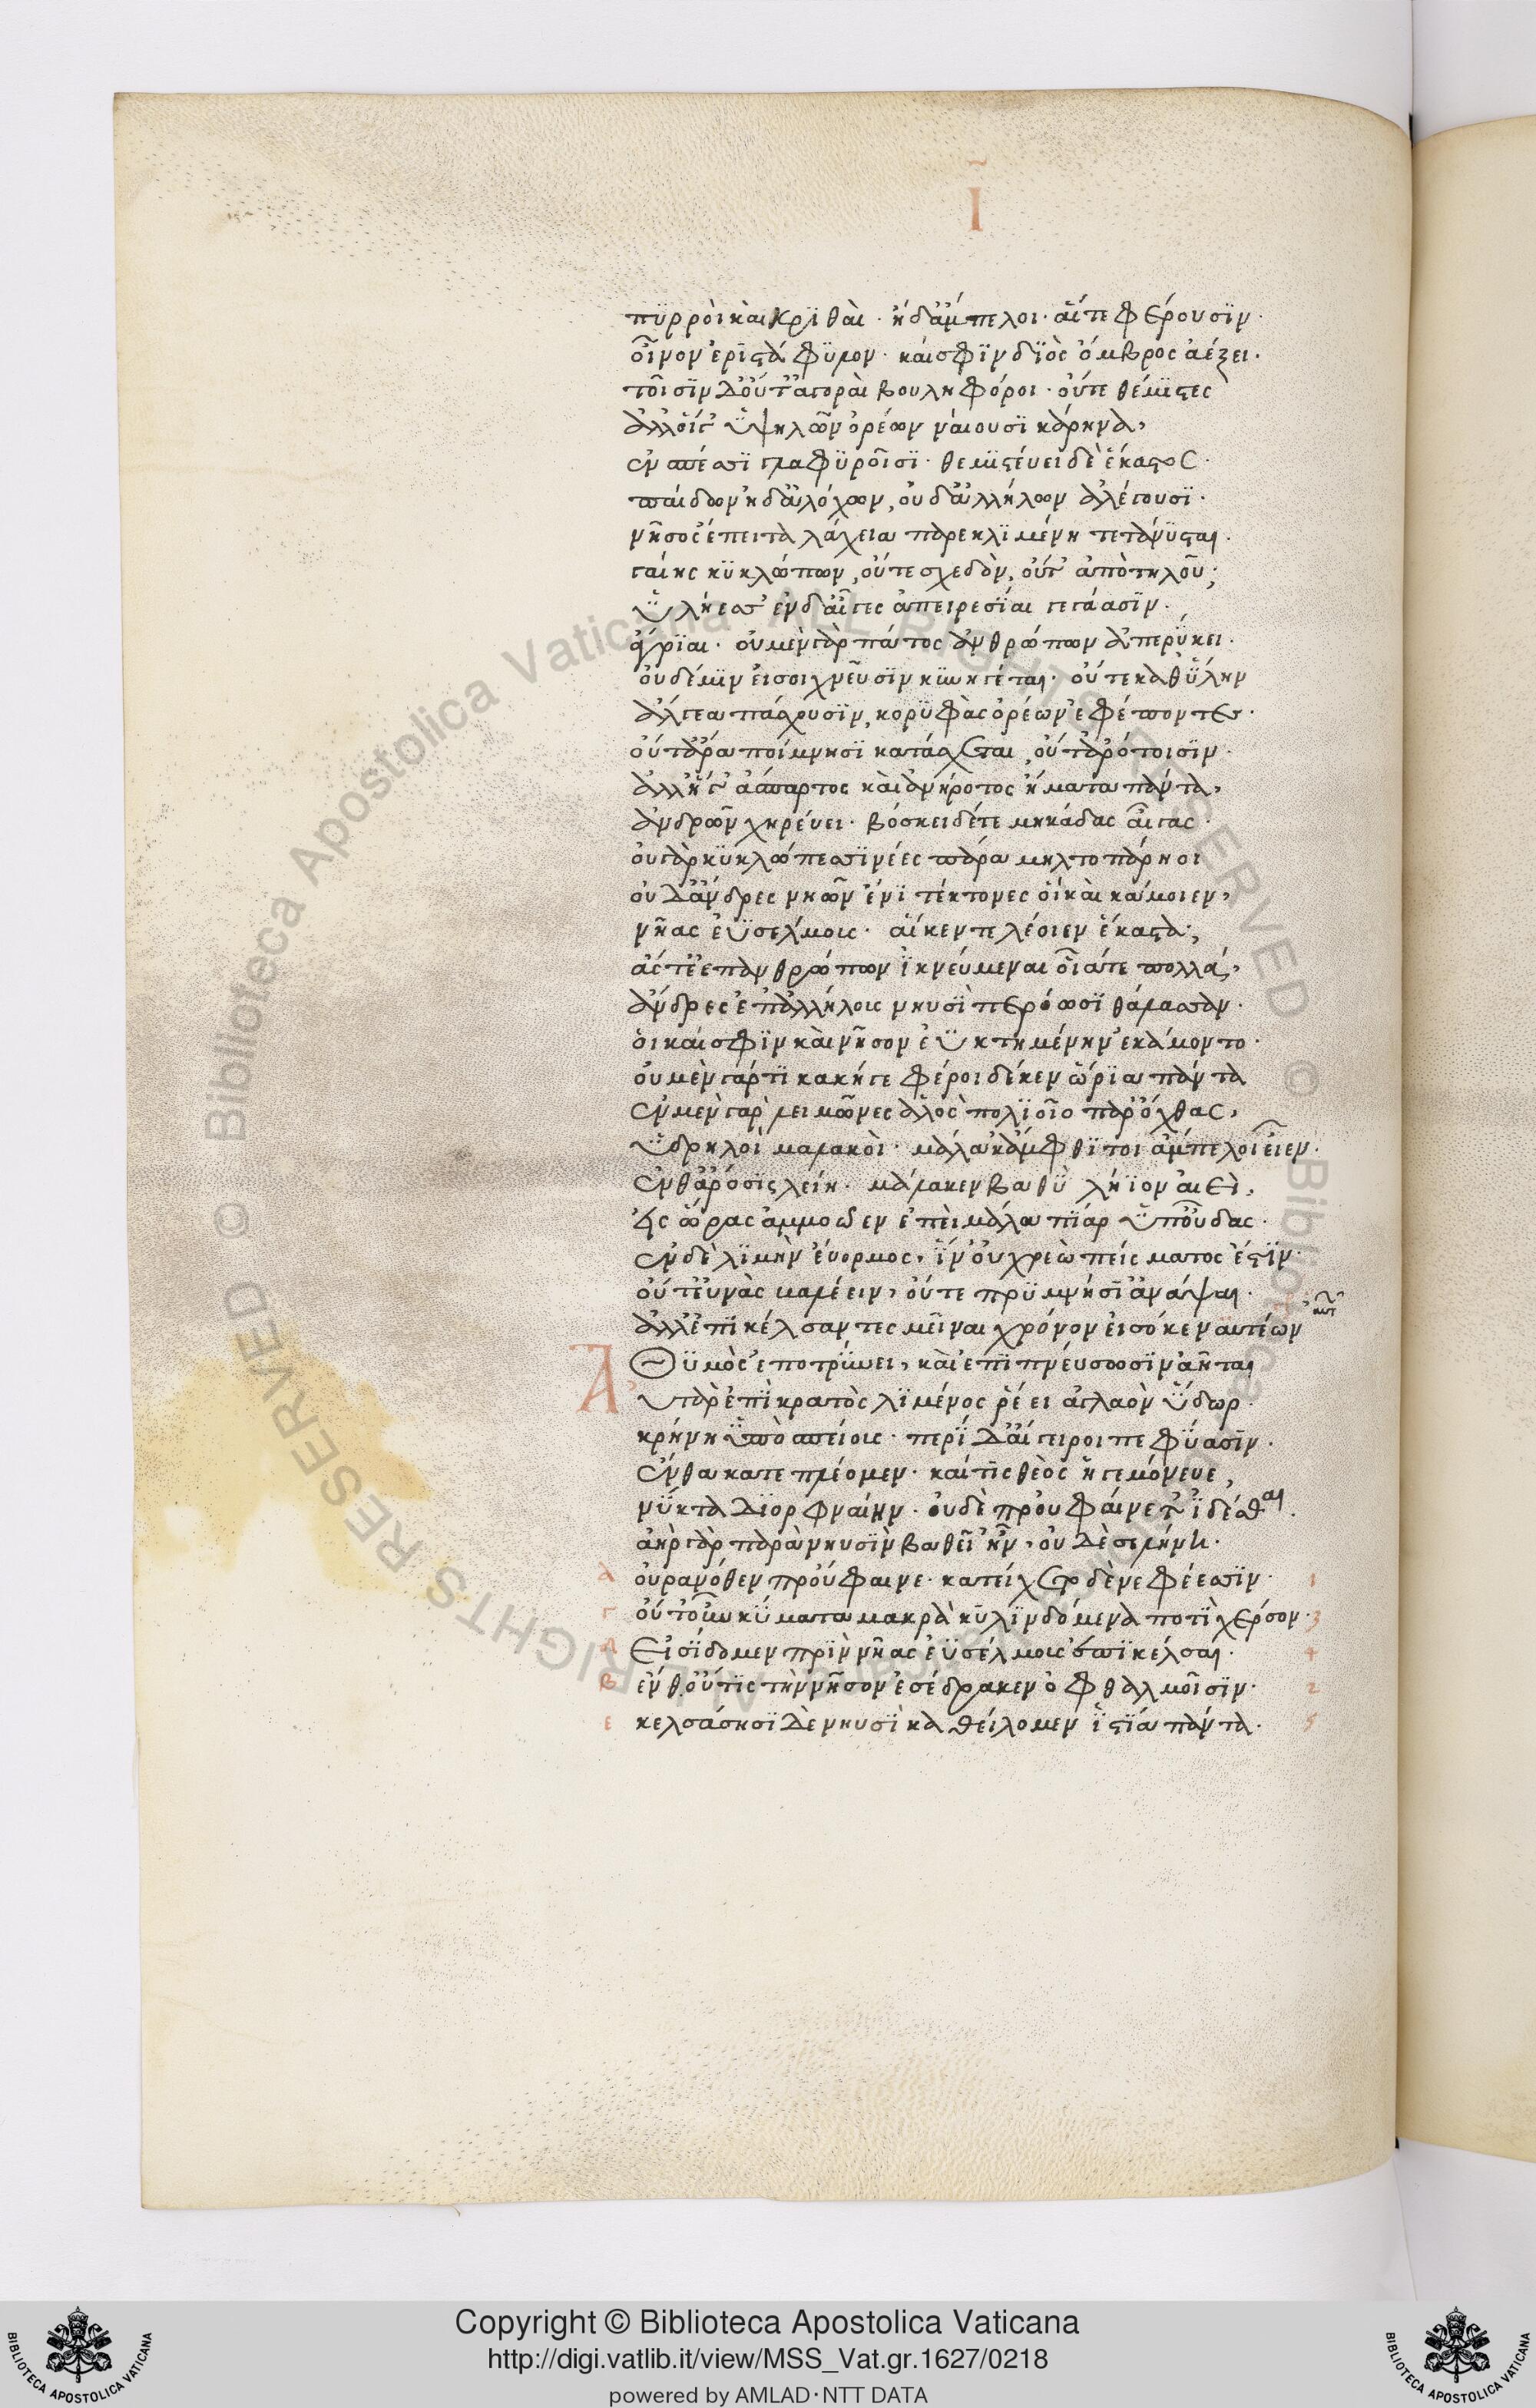 Ϊ
πϋρροὶ καὶ κρϊθαὶ · ἠδ' ἄμπελοι · αἵτε φέρουσϊν ·
οἶνον ἐρϊστάφϋλον · καί σφϊν δϊὸς ὄμβρος ἀέξει ·
τοῖσϊν δ' οὔτ' ἀγοραὶ βουληφόροι · οὔτε θέμϊστες
ἀλλ' οἵγ' ὑψηλῶν ὀρέων ναίουσϊ κάρηνα,
ἐν σπέσσϊ γλαφϋροῖσϊ · θεμϊστεύει δὲ ἕκαστος ·
παίδων ἠδ' ἀλόχων, οὐδ' ἀλλήλων ἀλέγουσϊ ·
νῆσος ἔπειτα λάχεια παρεκλϊμένη τετάνϋσται ·
γαίης κϋκλώπων, οὔτε σχεδὸν, οὔτ' ἀποτηλοῦ ·
ὑλήεσσ' ἐν δ' αἶγες ἀπειρεσϊαι γεγάασϊν ·
ἄγρϊαι · οὐ μὲν γὰρ πάτος ἀνθρώπων ἀπερύκει ·
οὐδέ μϊν εἰσοιχνεῦσϊν κϋνηγέται · οὔτε καθ' ὕλην
ἄλγεα πάσχουσϊν, κορϋφὰς ὀρέων ἐφέποντες ·
οὔτ' ἄρα ποίμνησϊ κατάσχεται, οὔτ' ἀρότοισϊν ·
ἀλλ' ἥγ' ἄσπαρτος καὶ ἀνήροτος ἤματα πάντα,
ἀνδρῶν χηρεύει · βόσκει δέ τε μηκάδας αἶγας ·
οὐ γὰρ κϋκλώπεσσϊ νέες πάρα μηλτοπάρηοι
οὐδ' ἄνδρες νηῶν ἔνϊ τέκτονες οἵ κε κάμοιεν,
νῆας ἐϋσέλμοις · αἵ κεν τελέοιεν ἕκαστα,
ἄστε' ἐπ' ἀνθρώπων ἱκνεύμεναι οἷά τε πολλά,
ἄνδρες ἐπ' ἀλλήλοις νηυσὶ περόωσϊ θάλασσαν ·
οἵ καί σφϊν καὶ νῆσον ἐϋκτημένην ἐκάμοντο ·
οὐ μὲν γάρ τϊ κακή γε φέροι δέ κεν ὥρϊα πάντα
ἐν μὲν γὰρ λειμῶνες ἁλὸς πολϊοῖο παρ' ὄχθας,
ὑδρηλοὶ μαλακοὶ · μάλα κ' ἄμφθϊτοι ἄμπελοι εἶεν ·
ἐν δ' ἄροσϊς λείη · μάλα κεν βαθὺ λήϊον αἰεὶ,
εἰς ὥρας ἀμμόωεν ἐπεὶ μάλα πῖαρ ὑπ' οὖδας ·
ἐν δὲ λϊμὴν ἔυορμος, ἵν' οὐ χρεὼ πείσματος ἐστϊν ·
οὔτ' εὐνὰς βαλέειν, οὔτε πρϋμνήσϊ' ἀνάψαι ·
ἀλλ' ἐπϊκέλσαντες μεῖναι χρόνον εἰσόκεν αὐτέων
Θϋμὸς ἐποτρύνει, καὶ ἐπϊπνεύσωσϊν ἀῆται
Αὐτὰρ ἐπὶ κρατὸς λϊμένος ῥέει ἀγλαὸν ὕδωρ ·
κρήνη ὑπὸ σπείους · περὶ δ' αἴγειροι πεφύασϊν ·
ἔνθα κατεπλέομεν · καί τις θεὸς ἡγεμόνευε,
νύκτα δϊ' ὀρφναίην · οὐδὲ προὐφαίνετ' ἰδέσθαι ·
ἀὴρ γὰρ παρὰ νηυσὶν βαθεῖ' ἦν, οὐδὲ σελήνη ·
δ οὐρανόθεν προὔφαινε · κατείχετο δὲ νεφέεσσϊν · 1
γ οὔτ' οὖν κύματα μακρὰ κϋλϊνδόμενα ποτὶ χέρσον · 3
δ Εἰσίδομεν πρὶν νῆας ἐϋσέλμοις ἐπϊκέλσαι · 4
β ἔνθ' οὔτϊς τὴν νῆσον ἐσέδρακεν ὀφθαλμοῖσϊν · 2
ε κελσάσησϊ δὲ νηυσὶ καθείλομεν ἱστία πάντα · 5
Copyright © Biblioteca Apostolica Vaticana
http://digi.vatlib.it/view/MSS_Vat.gr.1627/0218
powered by AMLAD·NTT DATA